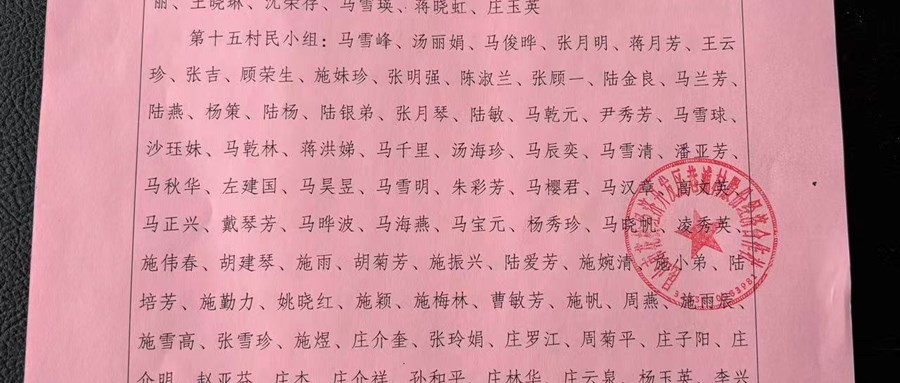 丽、王晓琳、沈荣存、马雪瑛、蒋晓虹、庄玉英
第十五村民小组：马雪峰、汤丽娟、马俊晔、张月明、蒋月芳、王云
珍、张吉、顾荣生、施妹珍、张明强、陈淑兰、张顾一、陆金良、马兰芳、
陆燕、杨策、陆杨、陆银弟、张月琴、陆敏、马乾元、尹秀芳、马雪球、
沙珏妹、马乾林、蒋洪娣、马千里、汤海珍、马辰奕、马雪清、潘亚芳、
马秋华、左建国、马昊昱、马雪明、朱彩芳、马樱君、马汉章、嵩文英、
马正兴、戴琴芳、马晔波、马海燕、马宝元、杨秀珍、马晓帆、凌秀英、
施伟春、胡建琴、施雨、胡菊芳、施振兴、陆爱芳、施婉清、施小弟、陆
培芳、施勤力、姚晓红、施颖、施梅林、曹敏芳、施帆、周燕、施雨辰、
施雪高、张雪珍、施煜、庄介奎、张玲娟、庄罗江、周菊平、庄子阳、庄
介明、赵亚芬、庄杰、庄介祥、孙和平、庄林华、庄云泉、杨玉英、李兴